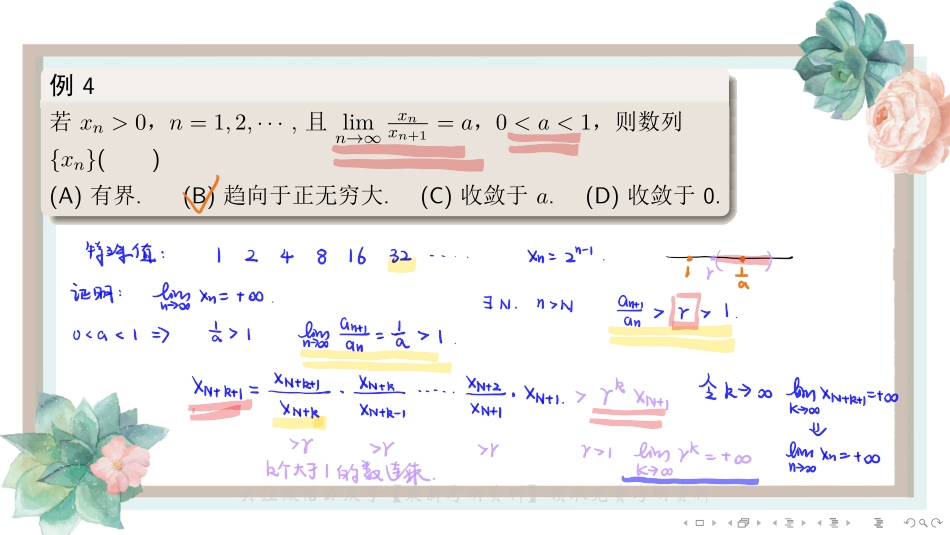 例 4
若 xₙ > 0，n = 1, 2, ⋯ , 且 lim_{n→∞} xₙ/xₙ₊₁ = a，0 < a < 1，则数列
{xₙ}(  )
(A) 有界. (B) 趋向于正无穷大. (C) 收敛于 a. (D) 收敛于 0.
特殊值: 1 2 4 8 16 32 ⋯⋯ xₙ = 2ⁿ⁻¹. 1 r ( 1/a )
证明: lim_{n→∞} xₙ = +∞. ∃ N. n > N aₙ₊₁/aₙ > r > 1.
0 < a < 1 ⇒ 1/a > 1 lim_{n→∞} aₙ₊₁/aₙ = 1/a > 1.
x_{N+k+1} = x_{N+k+1}/x_{N+k} · x_{N+k}/x_{N+k-1} ⋯⋯ x_{N+2}/x_{N+1} · x_{N+1}. > rᵏ x_{N+1} 令 k→∞ lim_{k→∞} x_{N+k+1} = +∞
⇓
>r >r >r r>1 lim_{k→∞} rᵏ = +∞ lim_{n→∞} xₙ = +∞
k个大于1的数连乘.